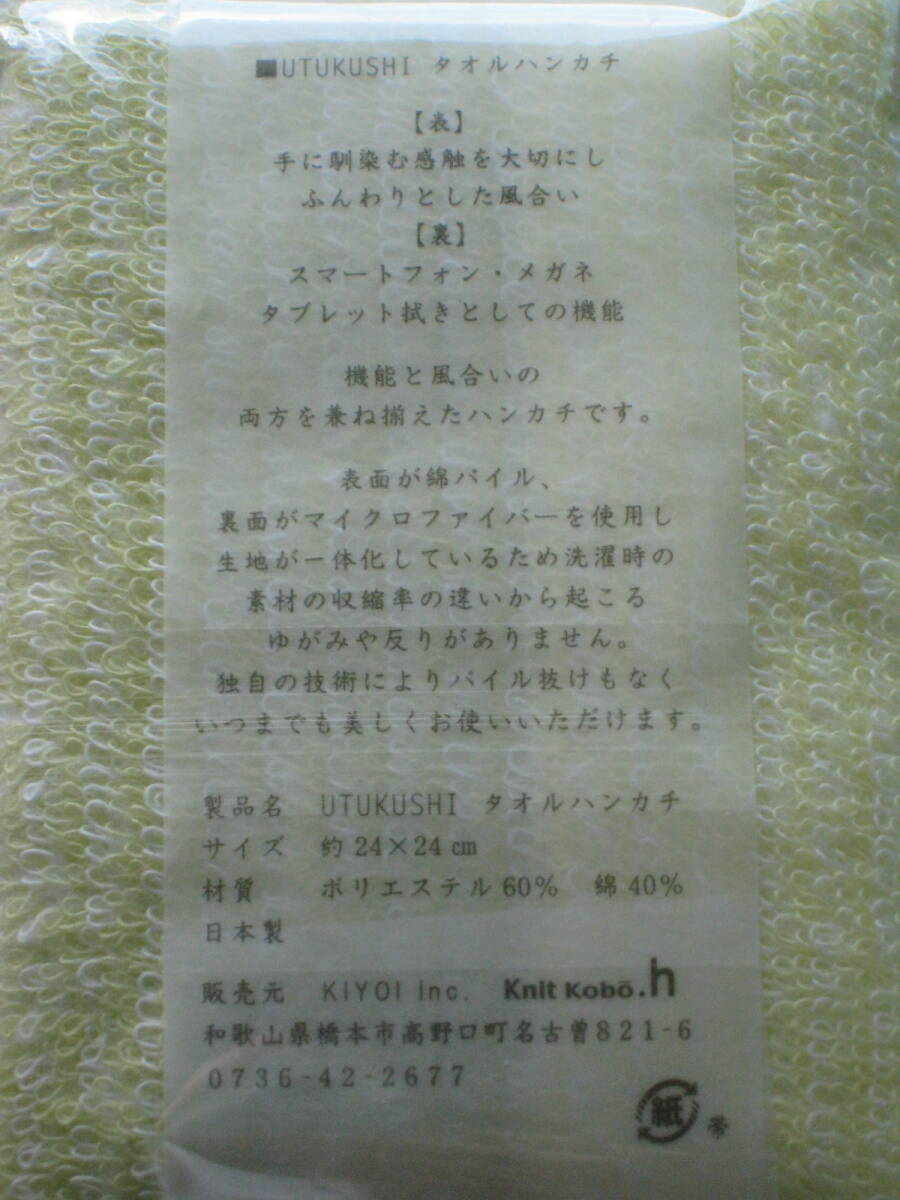 ■UTUKUSHI タオルハンカチ
【表】
手に馴染む感触を大切にし
ふんわりとした風合い
【裏】
スマートフォン・メガネ
タブレット拭きとしての機能
機能と風合いの
両方を兼ね揃えたハンカチです。
表面が綿パイル、
裏面がマイクロファイバーを使用し
生地が一体化しているため洗濯時の
素材の収縮率の違いから起こる
ゆがみや反りがありません。
独自の技術によりパイル抜けもなく
いつまでも美しくお使いいただけます。
製品名 UTUKUSHI タオルハンカチ
サイズ 約24×24㎝
材質 ポリエステル60% 綿40%
日本製
販売元 KIYOI Inc. Knit Kobō.h
和歌山県橋本市高野口町名古曽821-6
0736-42-2677
紙 帯